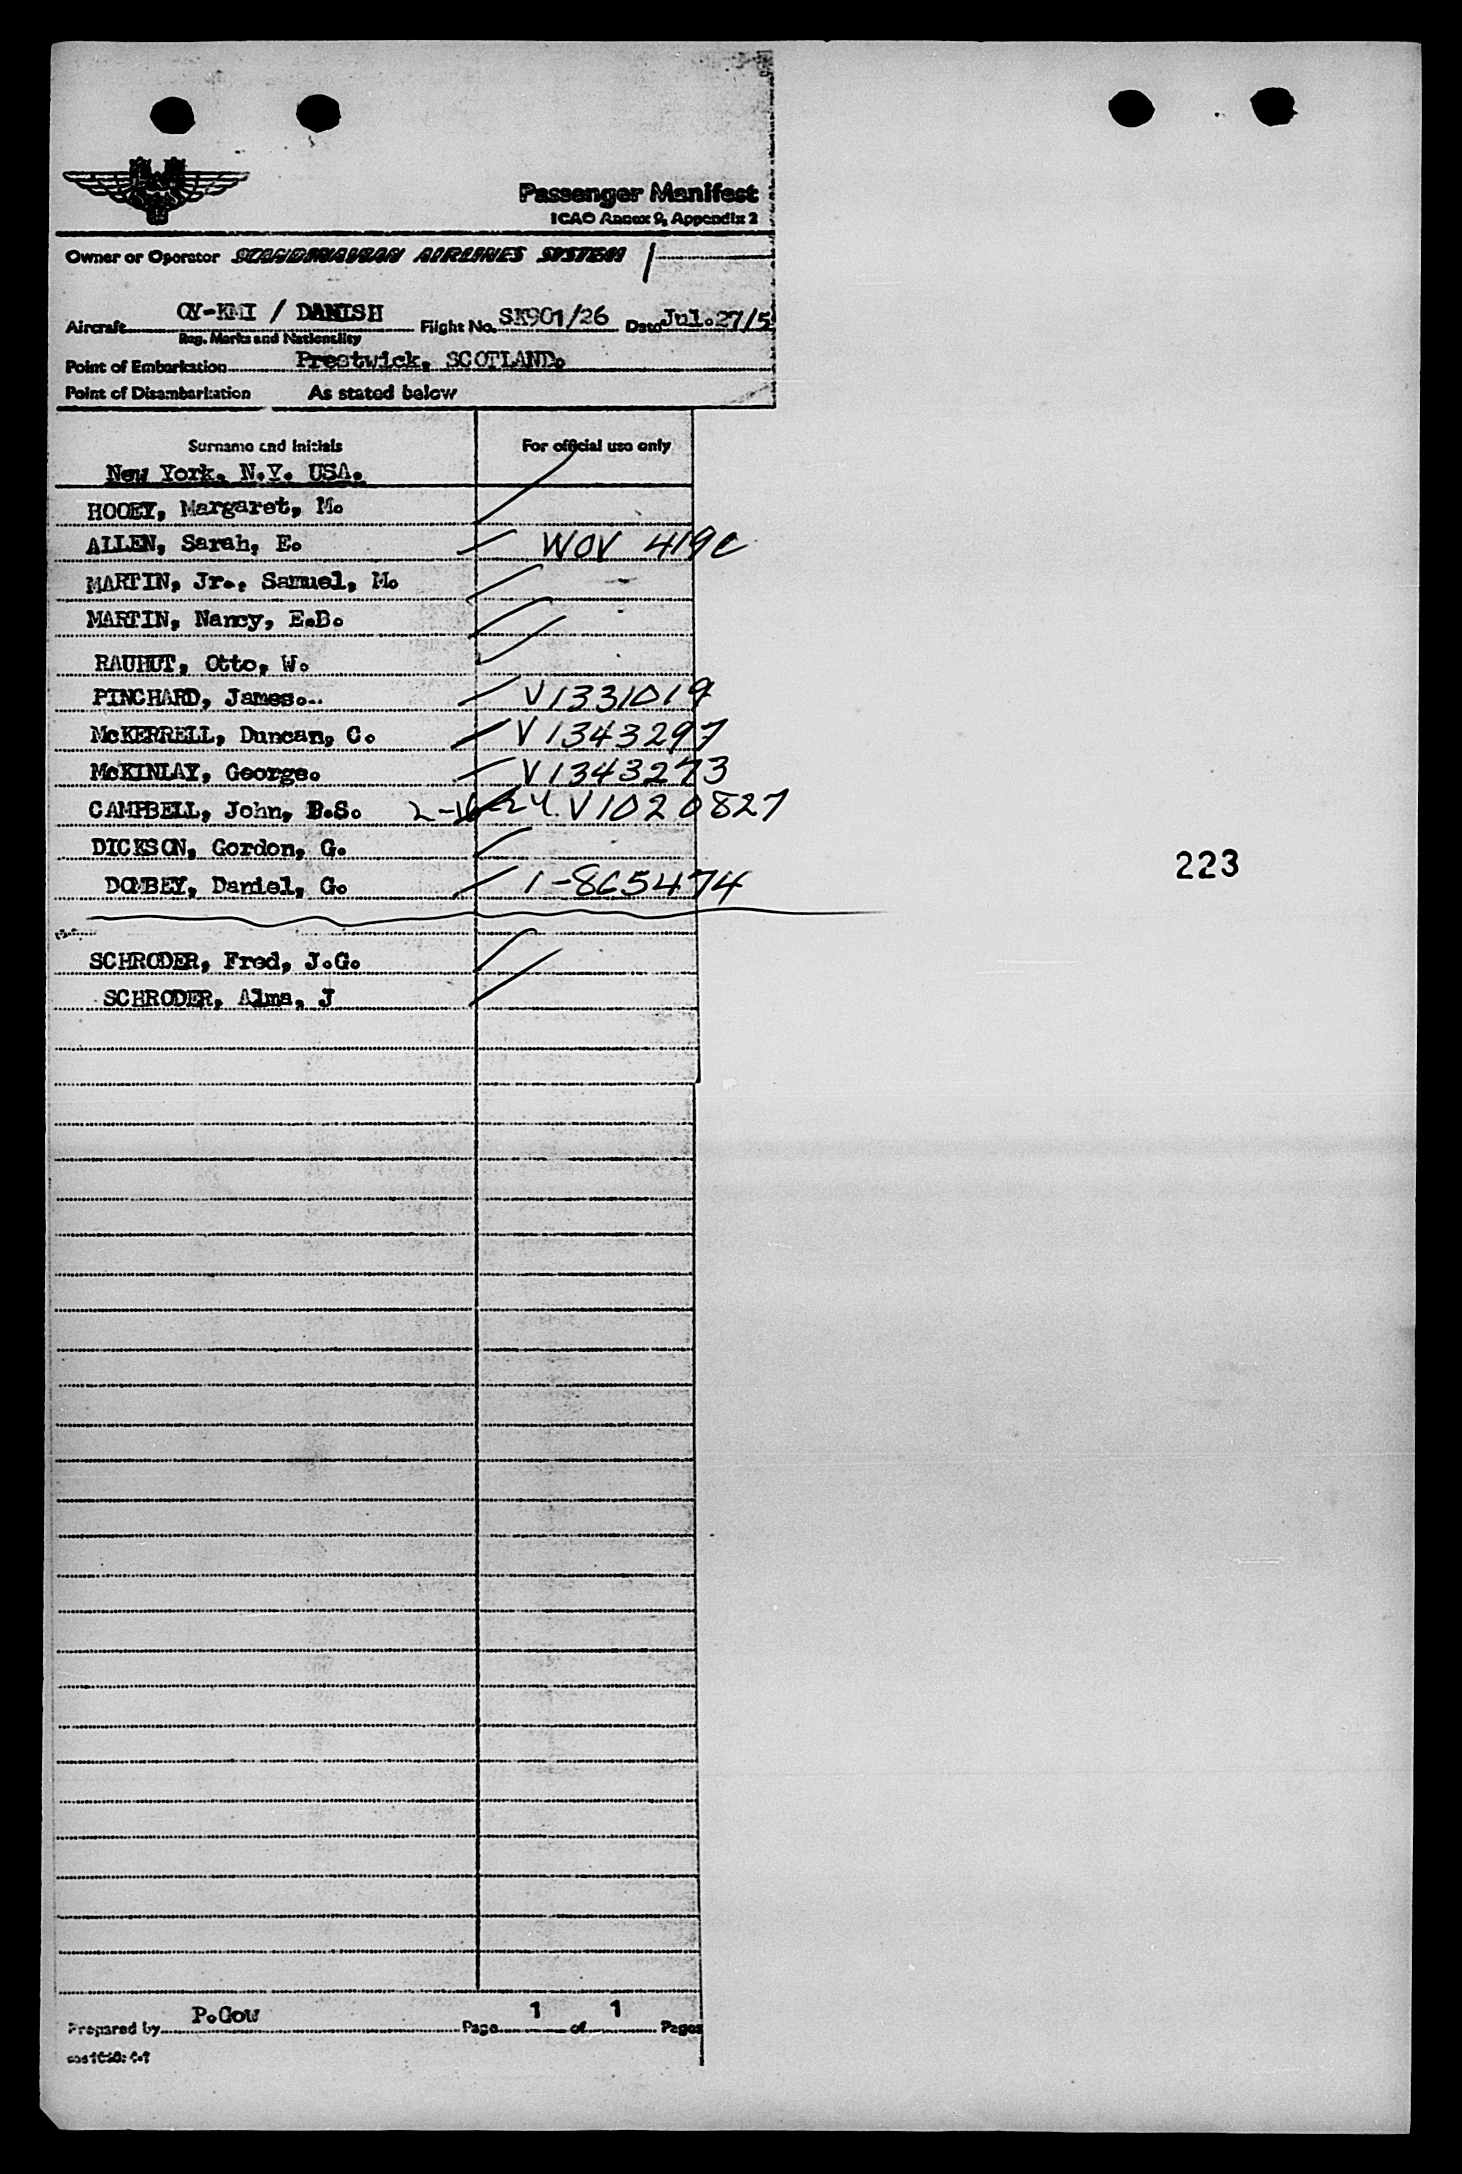 Passenger Manifest
ICAO Annex 9, Appendix 2
Owner or Operator SCANDINAVIAN AIRLINES SYSTEM
Aircraft OY-KMI / DANISH Flight No. SK901/26 Date Jul.27/5
Reg. Marks and Nationality
Point of Embarkation Prestwick, SCOTLAND.
Point of Disembarkation As stated below
Surname and Initials For official use only
New York. N.Y. USA.
HOOEY, Margaret, M.
ALLEN, Sarah, E. WOV 419c
MARTIN, Jr., Samuel, M.
MARTIN, Nancy, E.B.
RAUHUT, Otto, W.
PINCHARD, James.
V1331019
McKERRELL, Duncan, C. V1343297
McKINLAY, George. V1343273
CAMPBELL, John, D.S. V1020827
DICKSON, Gordon, G.
DOMBEY, Daniel, G. 1-865474
223
SCHRODER, Fred, J.G.
SCHRODER, Alma, J
Prepared by P.Gow Page 1 of 1 Pages